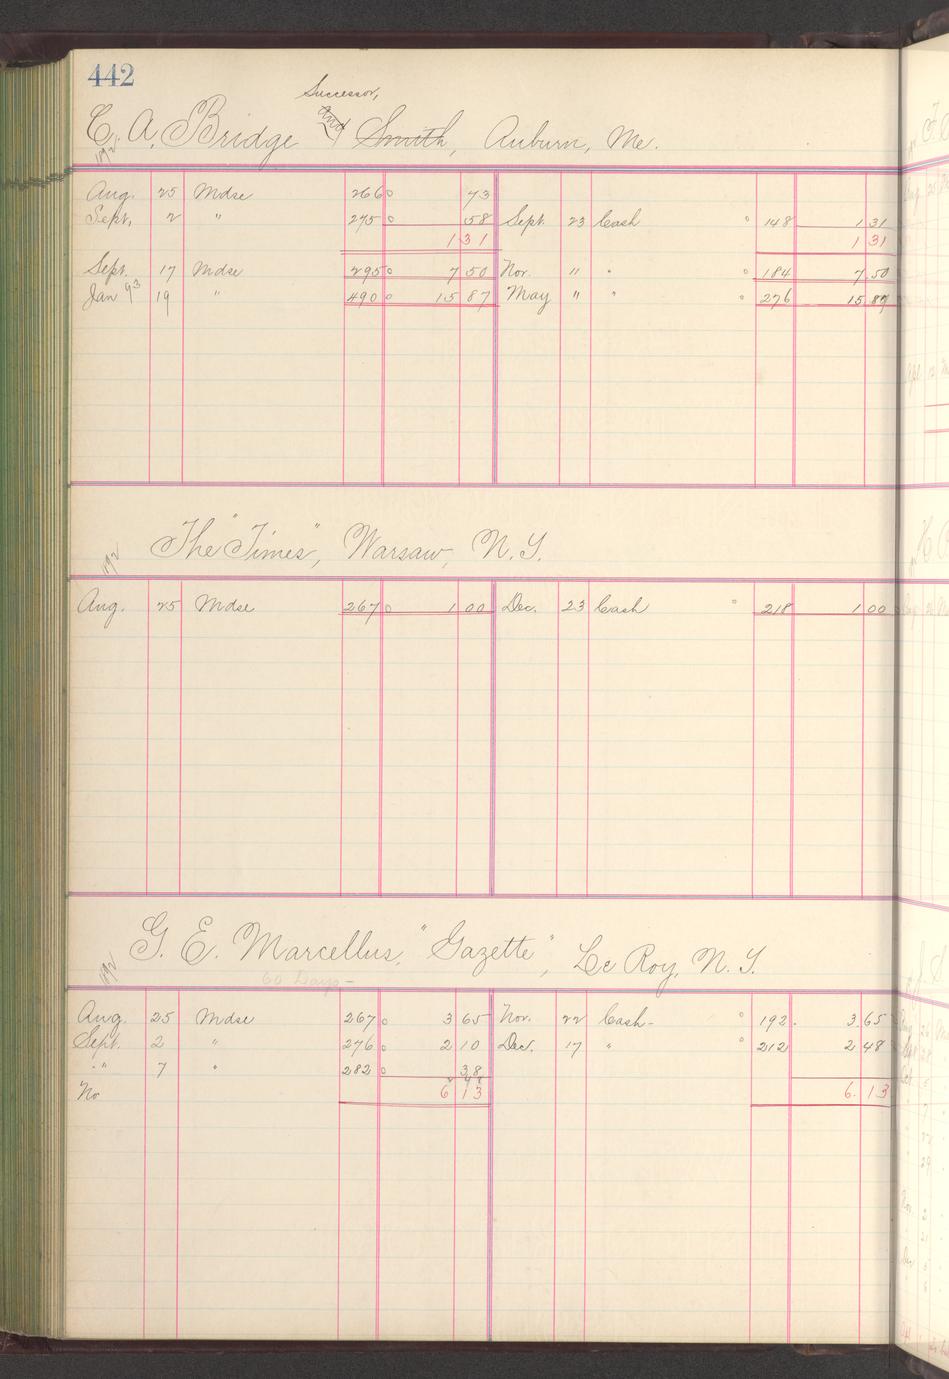 442
Successor,
C. A. Bridge and Smith, Auburn, Me.
1892
Aug. 25 Mdse 266 73
Sept. 2 " 275 58 Sept 23 Cash 148 1 31
1 31 1 31
Sept. 17 Mdse 295 7 50 Nov. " " 184 7 50
Jan 93 19 " 490 15 87 May " " 276 15 87
The "Times", Warsaw, N.Y.
1892
Aug. 25 Mdse 267 1 00 Dec. 23 Cash 218 1 00
G. E. Marcellus, "Gazette", Le Roy, N.Y.
1892
60 Days -
Aug. 25 Mdse 267 3 65 Nov. 22 Cash - 192 3 65
Sept. 2 " 276 2 10 Dec. 17 " 212 2 48
" 7 " 282 38
2 48
No 6 13 6 13